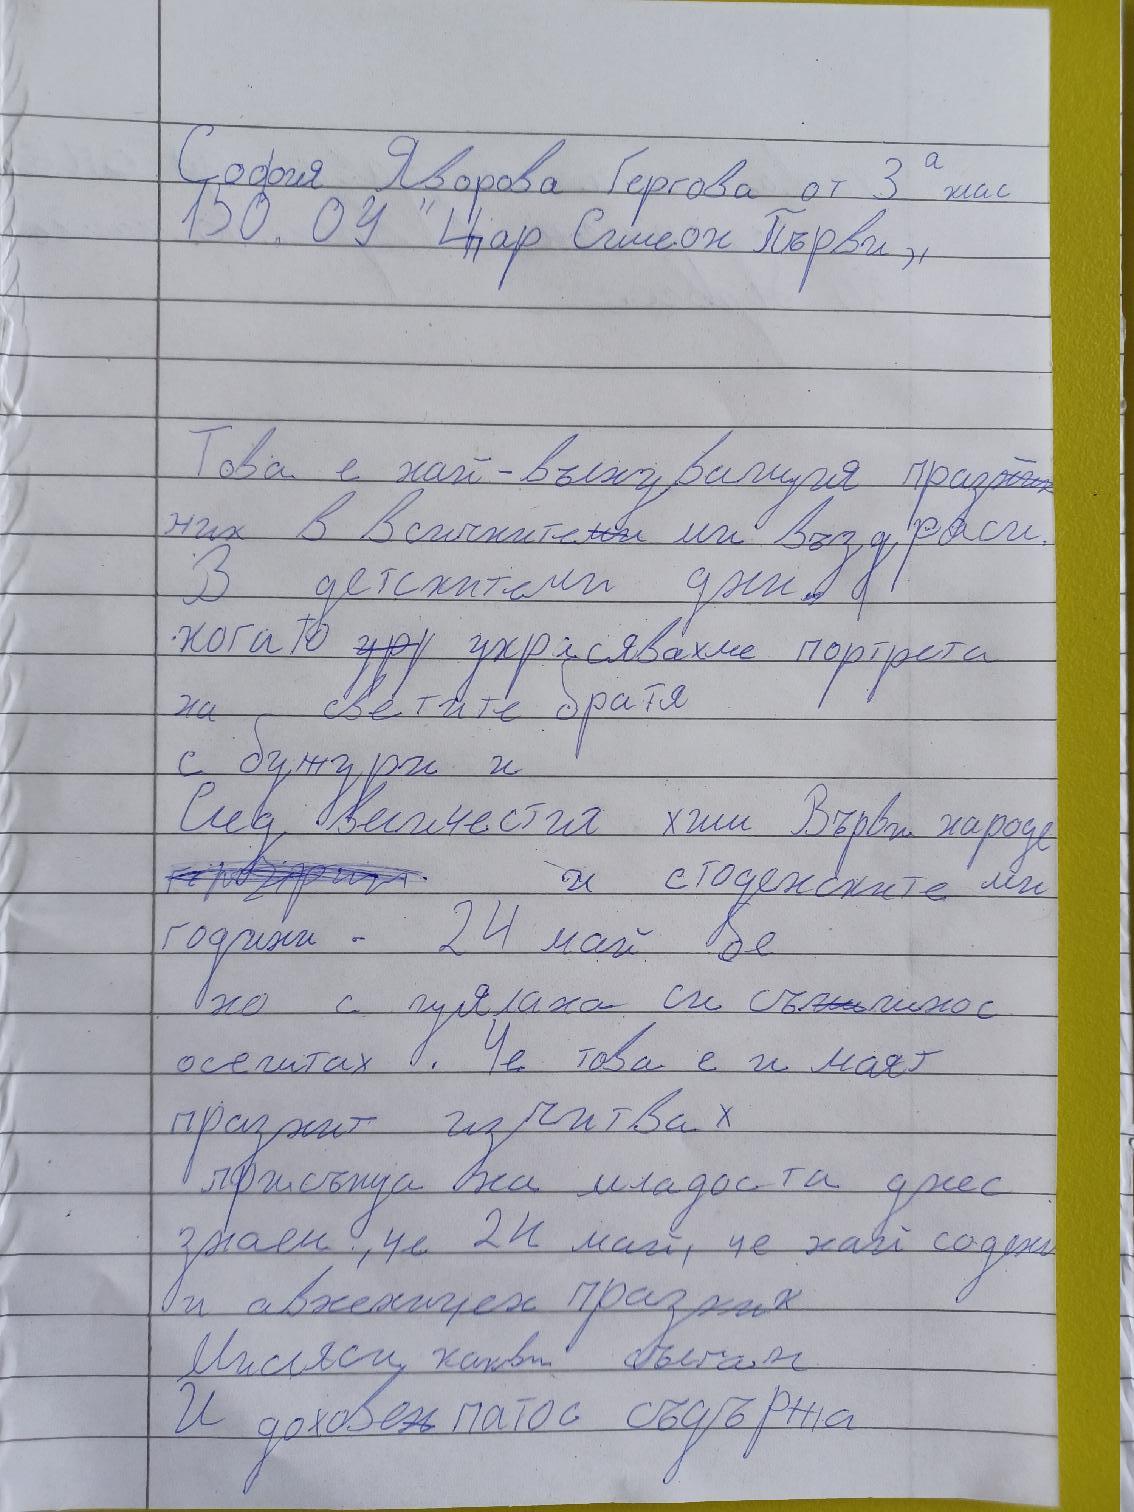 София Яворова Гергова от 3 а клас
150. ОУ "Цар Симеон Първи„
Това е най-вълнуващия праз
ник в всичките ми възраси.
В детските ми дни.
когато украсявахме портрета
на светите братя
с бужури и
След величестия хим Върви народе
и стоденските ми
години - 24 май бе
но с си
. Че това е и маят
празнит изчитвах
на младоста днес
знаен, че 24 май, че най содени
и празник
Мисляси, какви
И доховен патос съдържа